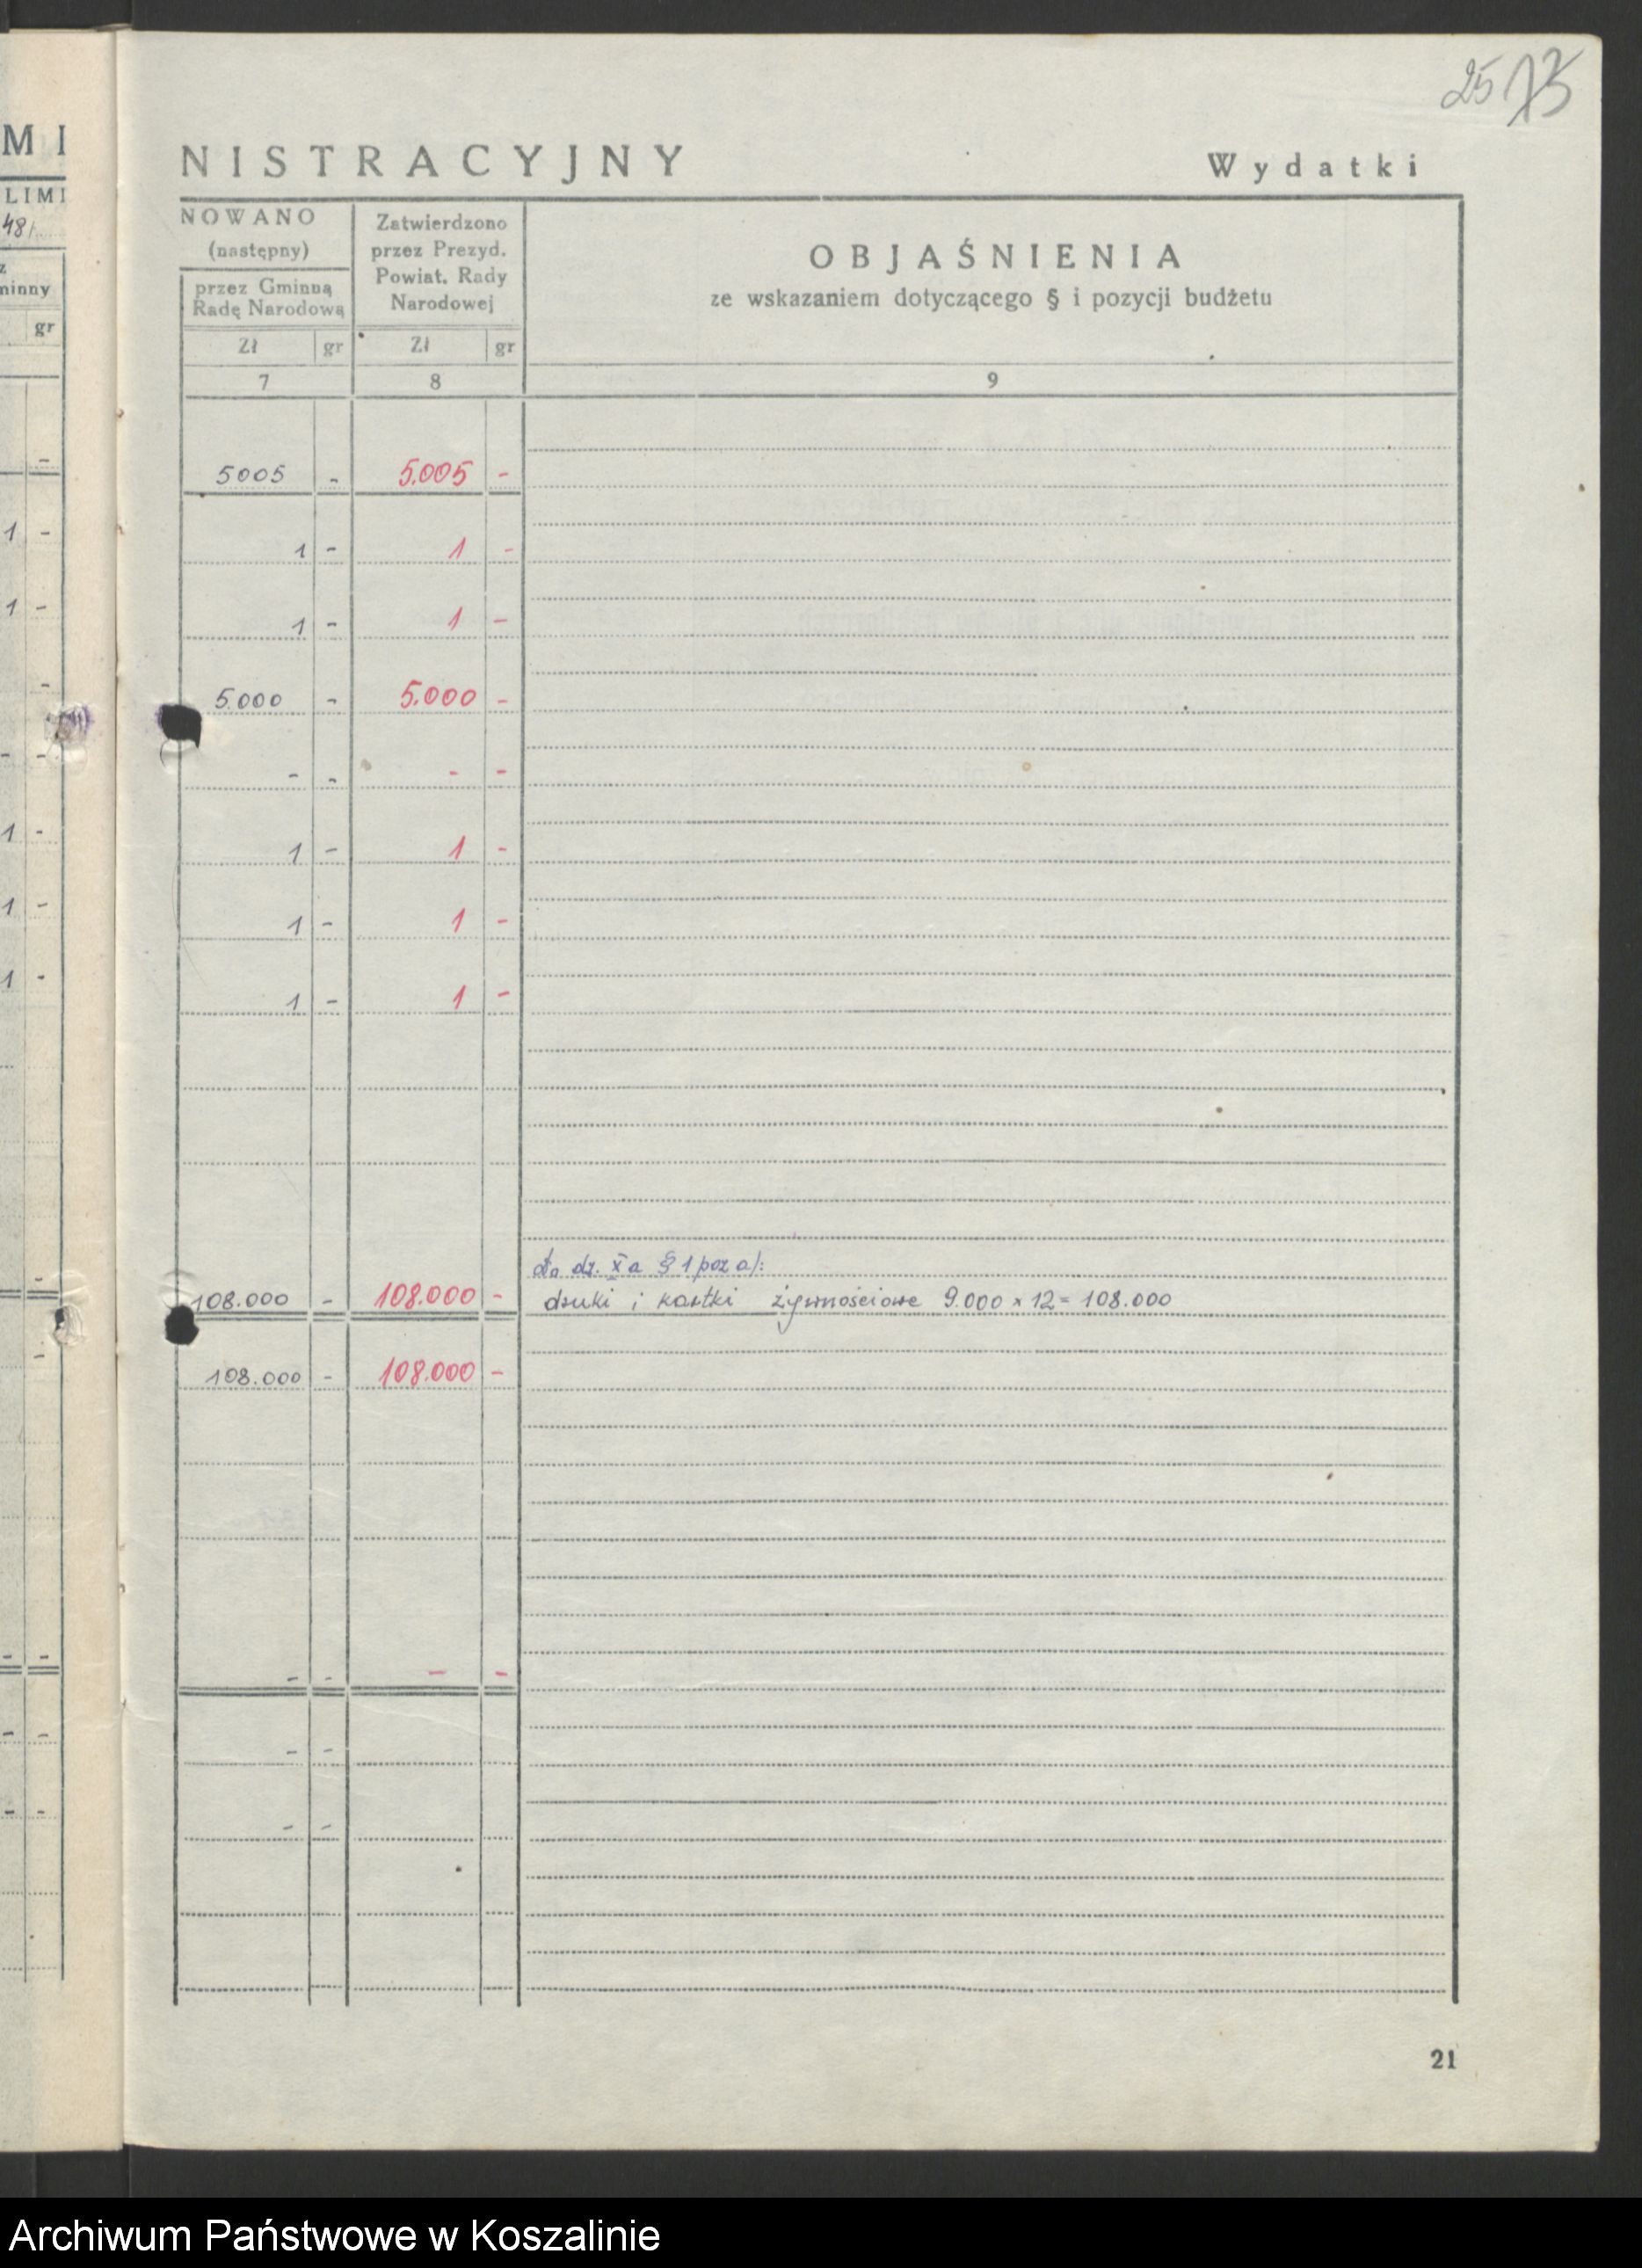 25 73
M I
NISTRACYJNY Wydatki
LIMI
48/
NOWANO
(następny)
przez Gminną
Radę Narodową
Zatwierdzono
przez Prezyd.
Powiat. Rady
Narodowej
OBJAŚNIENIA
ze wskazaniem dotyczącego § i pozycji budżetu
z
minny
gr
Zł gr Zł gr
7 8 9
-
5005 - 5.005 -
1 -
1 - 1 -
1 -
1 - 1 -
-
5.000 - 5.000 -
- -
- - - -
1 -
1 - 1 -
1 -
1 - 1 -
1 -
1 - 1 -
do dz. Xa § 1 poz a):
-
108.000 - 108.000 - druki i kartki żywnościowe 9.000 x 12 = 108.000
-
108.000 - 108.000 -
- -
- - - -
- -
- -
- -
- -
21
Archiwum Państwowe w Koszalinie